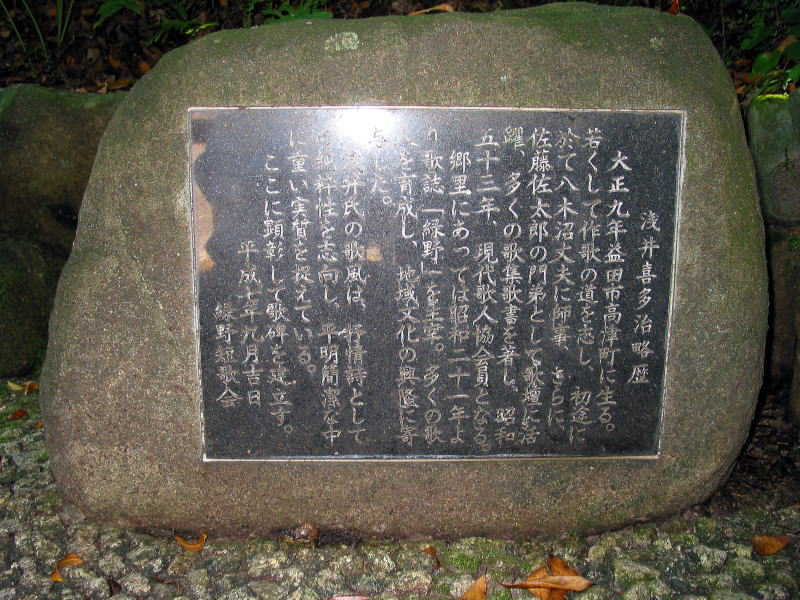 浅井喜多治略歴
大正九年益田市高津町に生る。
若くして作歌の道を志し、初途に
於て八木沼丈夫に師事、さらに、
佐藤佐太郎の門弟として歌壇に活
躍、多くの歌集歌書を著し、昭和
五十三年、現代歌人協会員となる。
郷里にあっては昭和二十一年よ
り歌誌「緑野」を主宰。多くの歌
人を育成し、地域文化の興隆に寄
与した。
浅井氏の歌風は、抒情詩として
の純粋性を志向し、平明簡潔な中
に重い実質を捉えている。
ここに顕彰して歌碑を建立す。
平成七年九月吉日
緑野短歌会